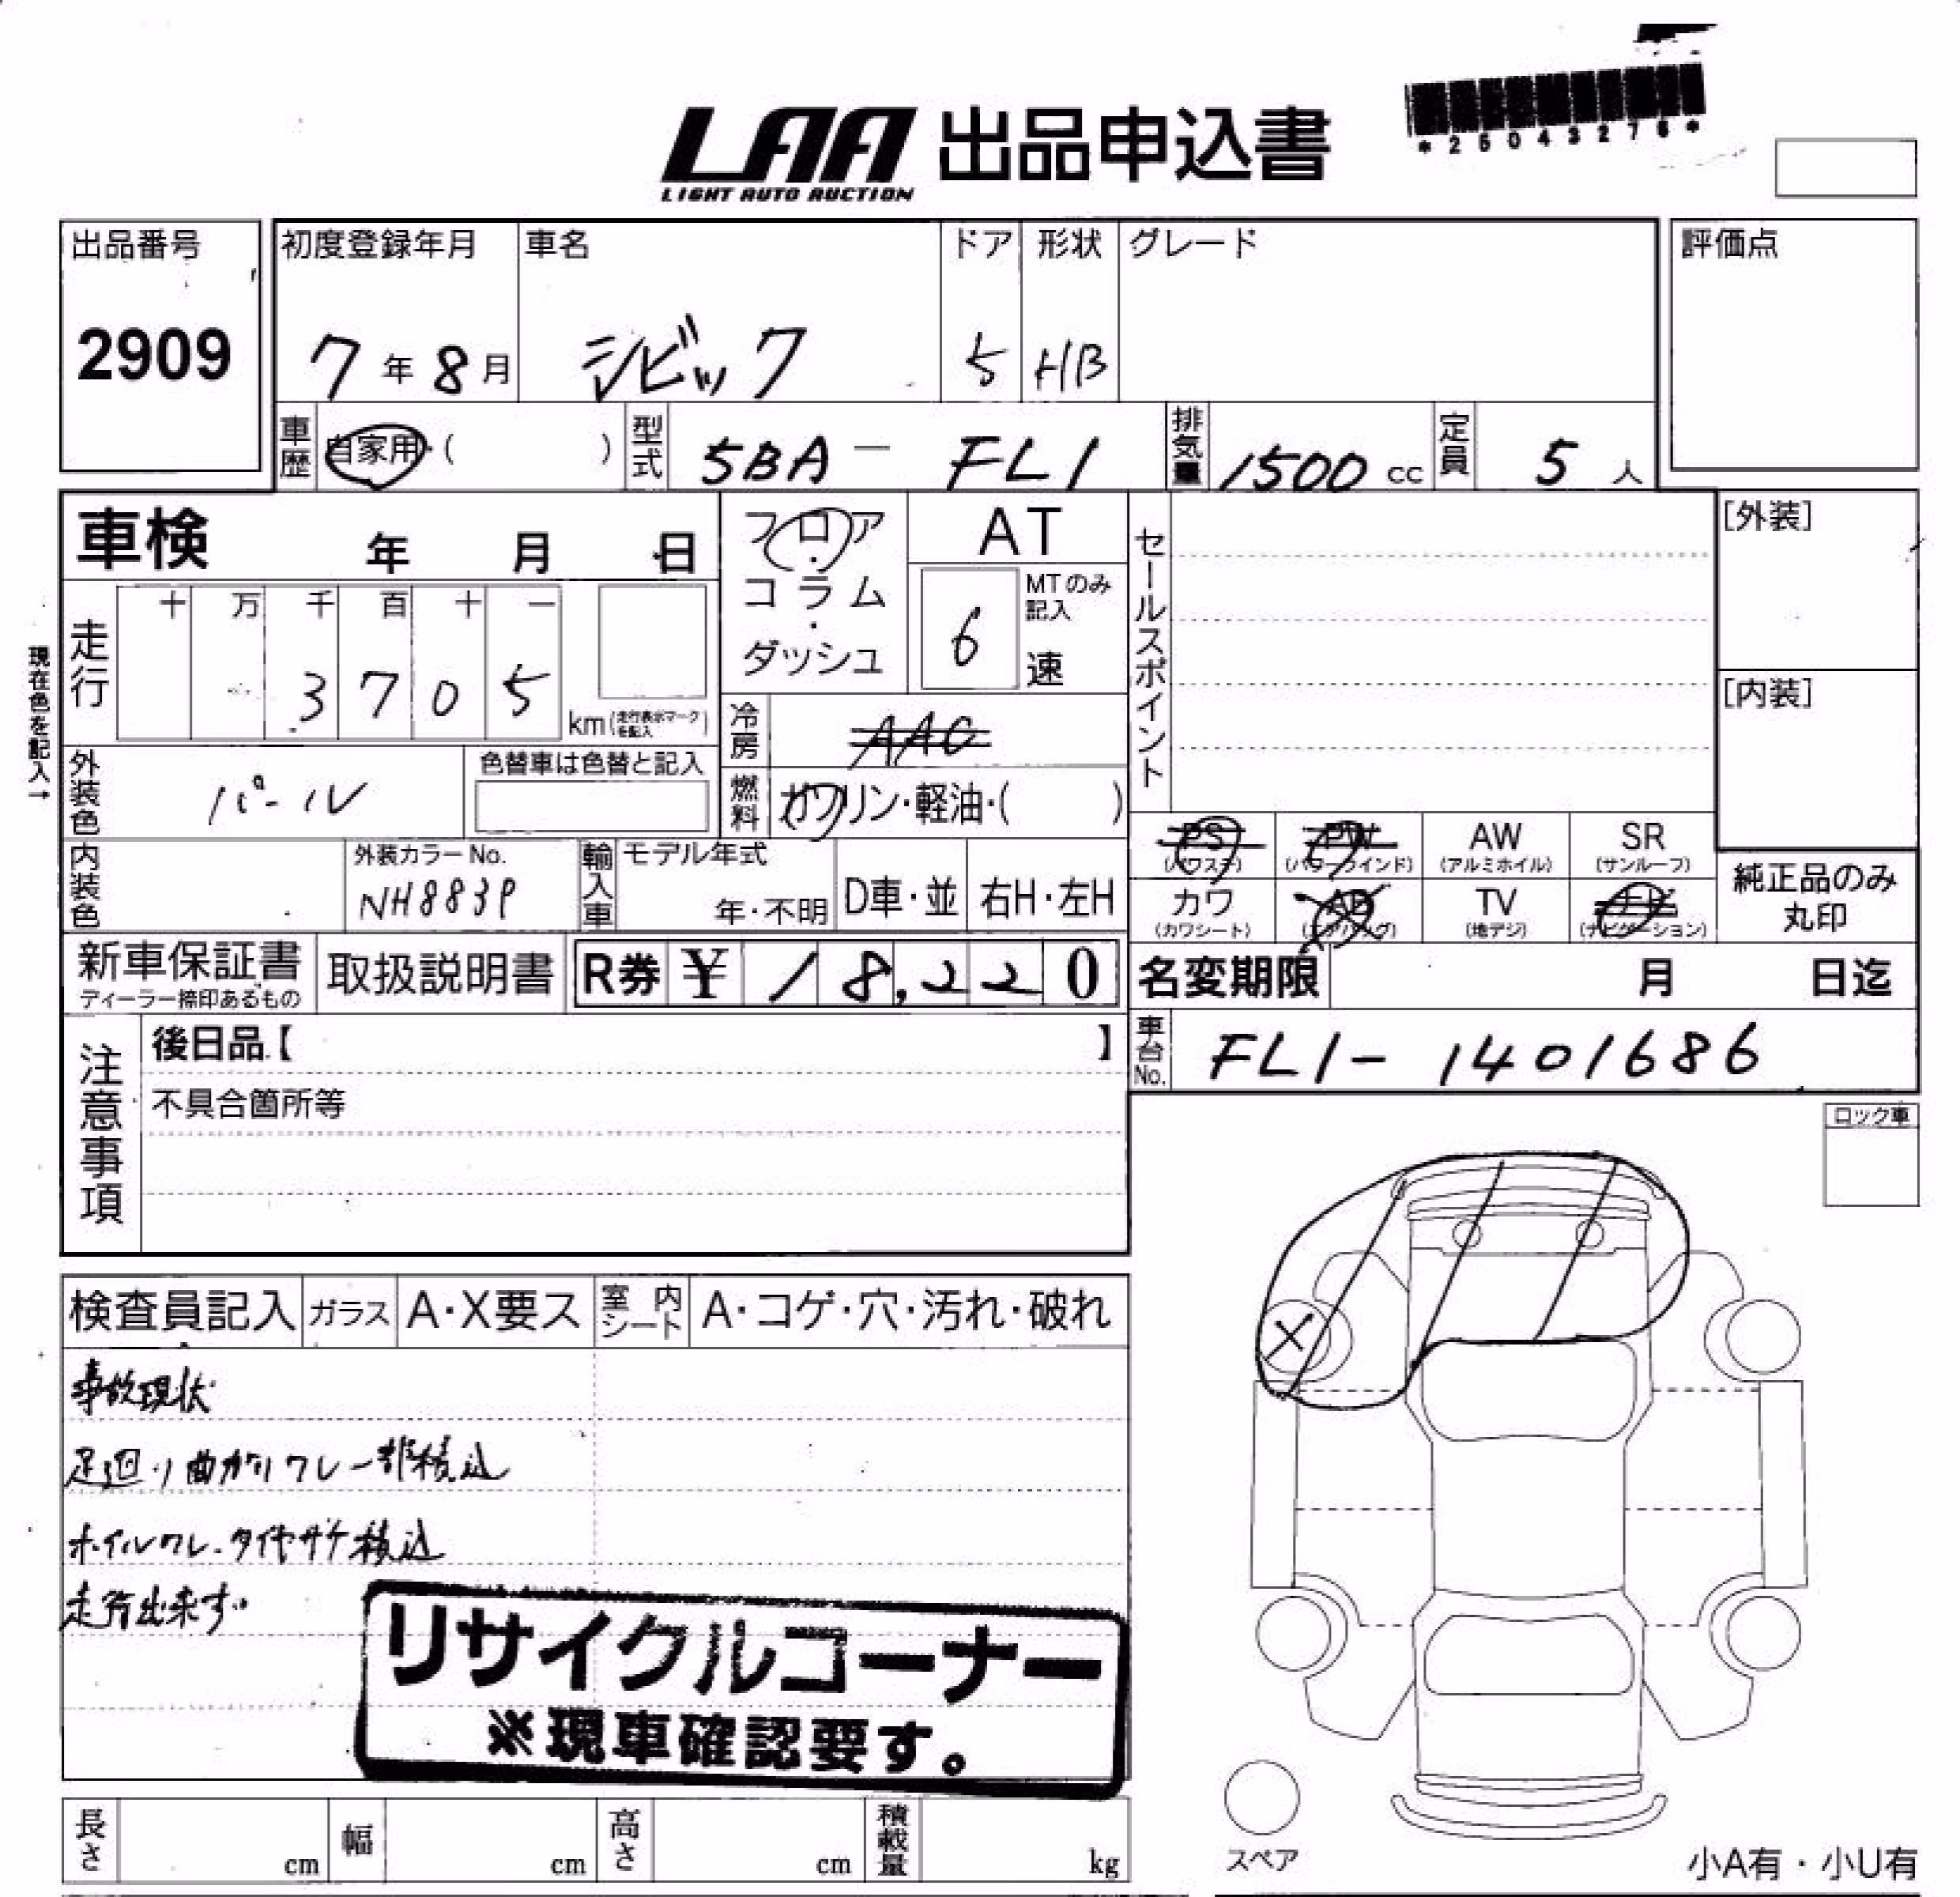 LAA 出品申込書
LIGHT AUTO AUCTION
出品番号
2909
初度登録年月
7年8月
車名
シビック
ドア
5
形状
HB
グレード
評価点
車歴
自家用・( )
型式
5BA - FL1
排気量
1500 cc
定員
5 人
車検 年 月 日
フロア・コラム・ダッシュ
AT
MTのみ記入
6 速
セールスポイント
[外装]
[内装]
現在色を記入→
走行
十 万 千 百 十 一
3 7 0 5
km(走行表示マークを記入)
冷房
AAC
外装色
パール
色替車は色替と記入
燃料
ガソリン・軽油・( )
PS (パワステ)
PW (パワーウインド)
AW (アルミホイル)
SR (サンルーフ)
カワ (カワシート)
AB (エアバッグ)
TV (地デジ)
(ナビゲーション)
純正品のみ丸印
内装色
外装カラーNo.
NH883P
輸入車
モデル年式
年・不明
D車・並
右H・左H
新車保証書
ディーラー捺印あるもの
取扱説明書
R券 ¥ 18,220
名変期限 月 日迄
車台No.
FL1- 1401686
注意事項
後日品【 】
不具合箇所等
ロック車
検査員記入
ガラス
A・X要ス
室内シート
A・コゲ・穴・汚れ・破れ
事故現状
足廻り曲がりワレ一部積込
ホイルワレ・タイヤサケ積込
走行出来ず
リサイクルコーナー
※現車確認要す。
長さ cm
幅 cm
高さ cm
積載量 kg
スペア
小A有・小U有